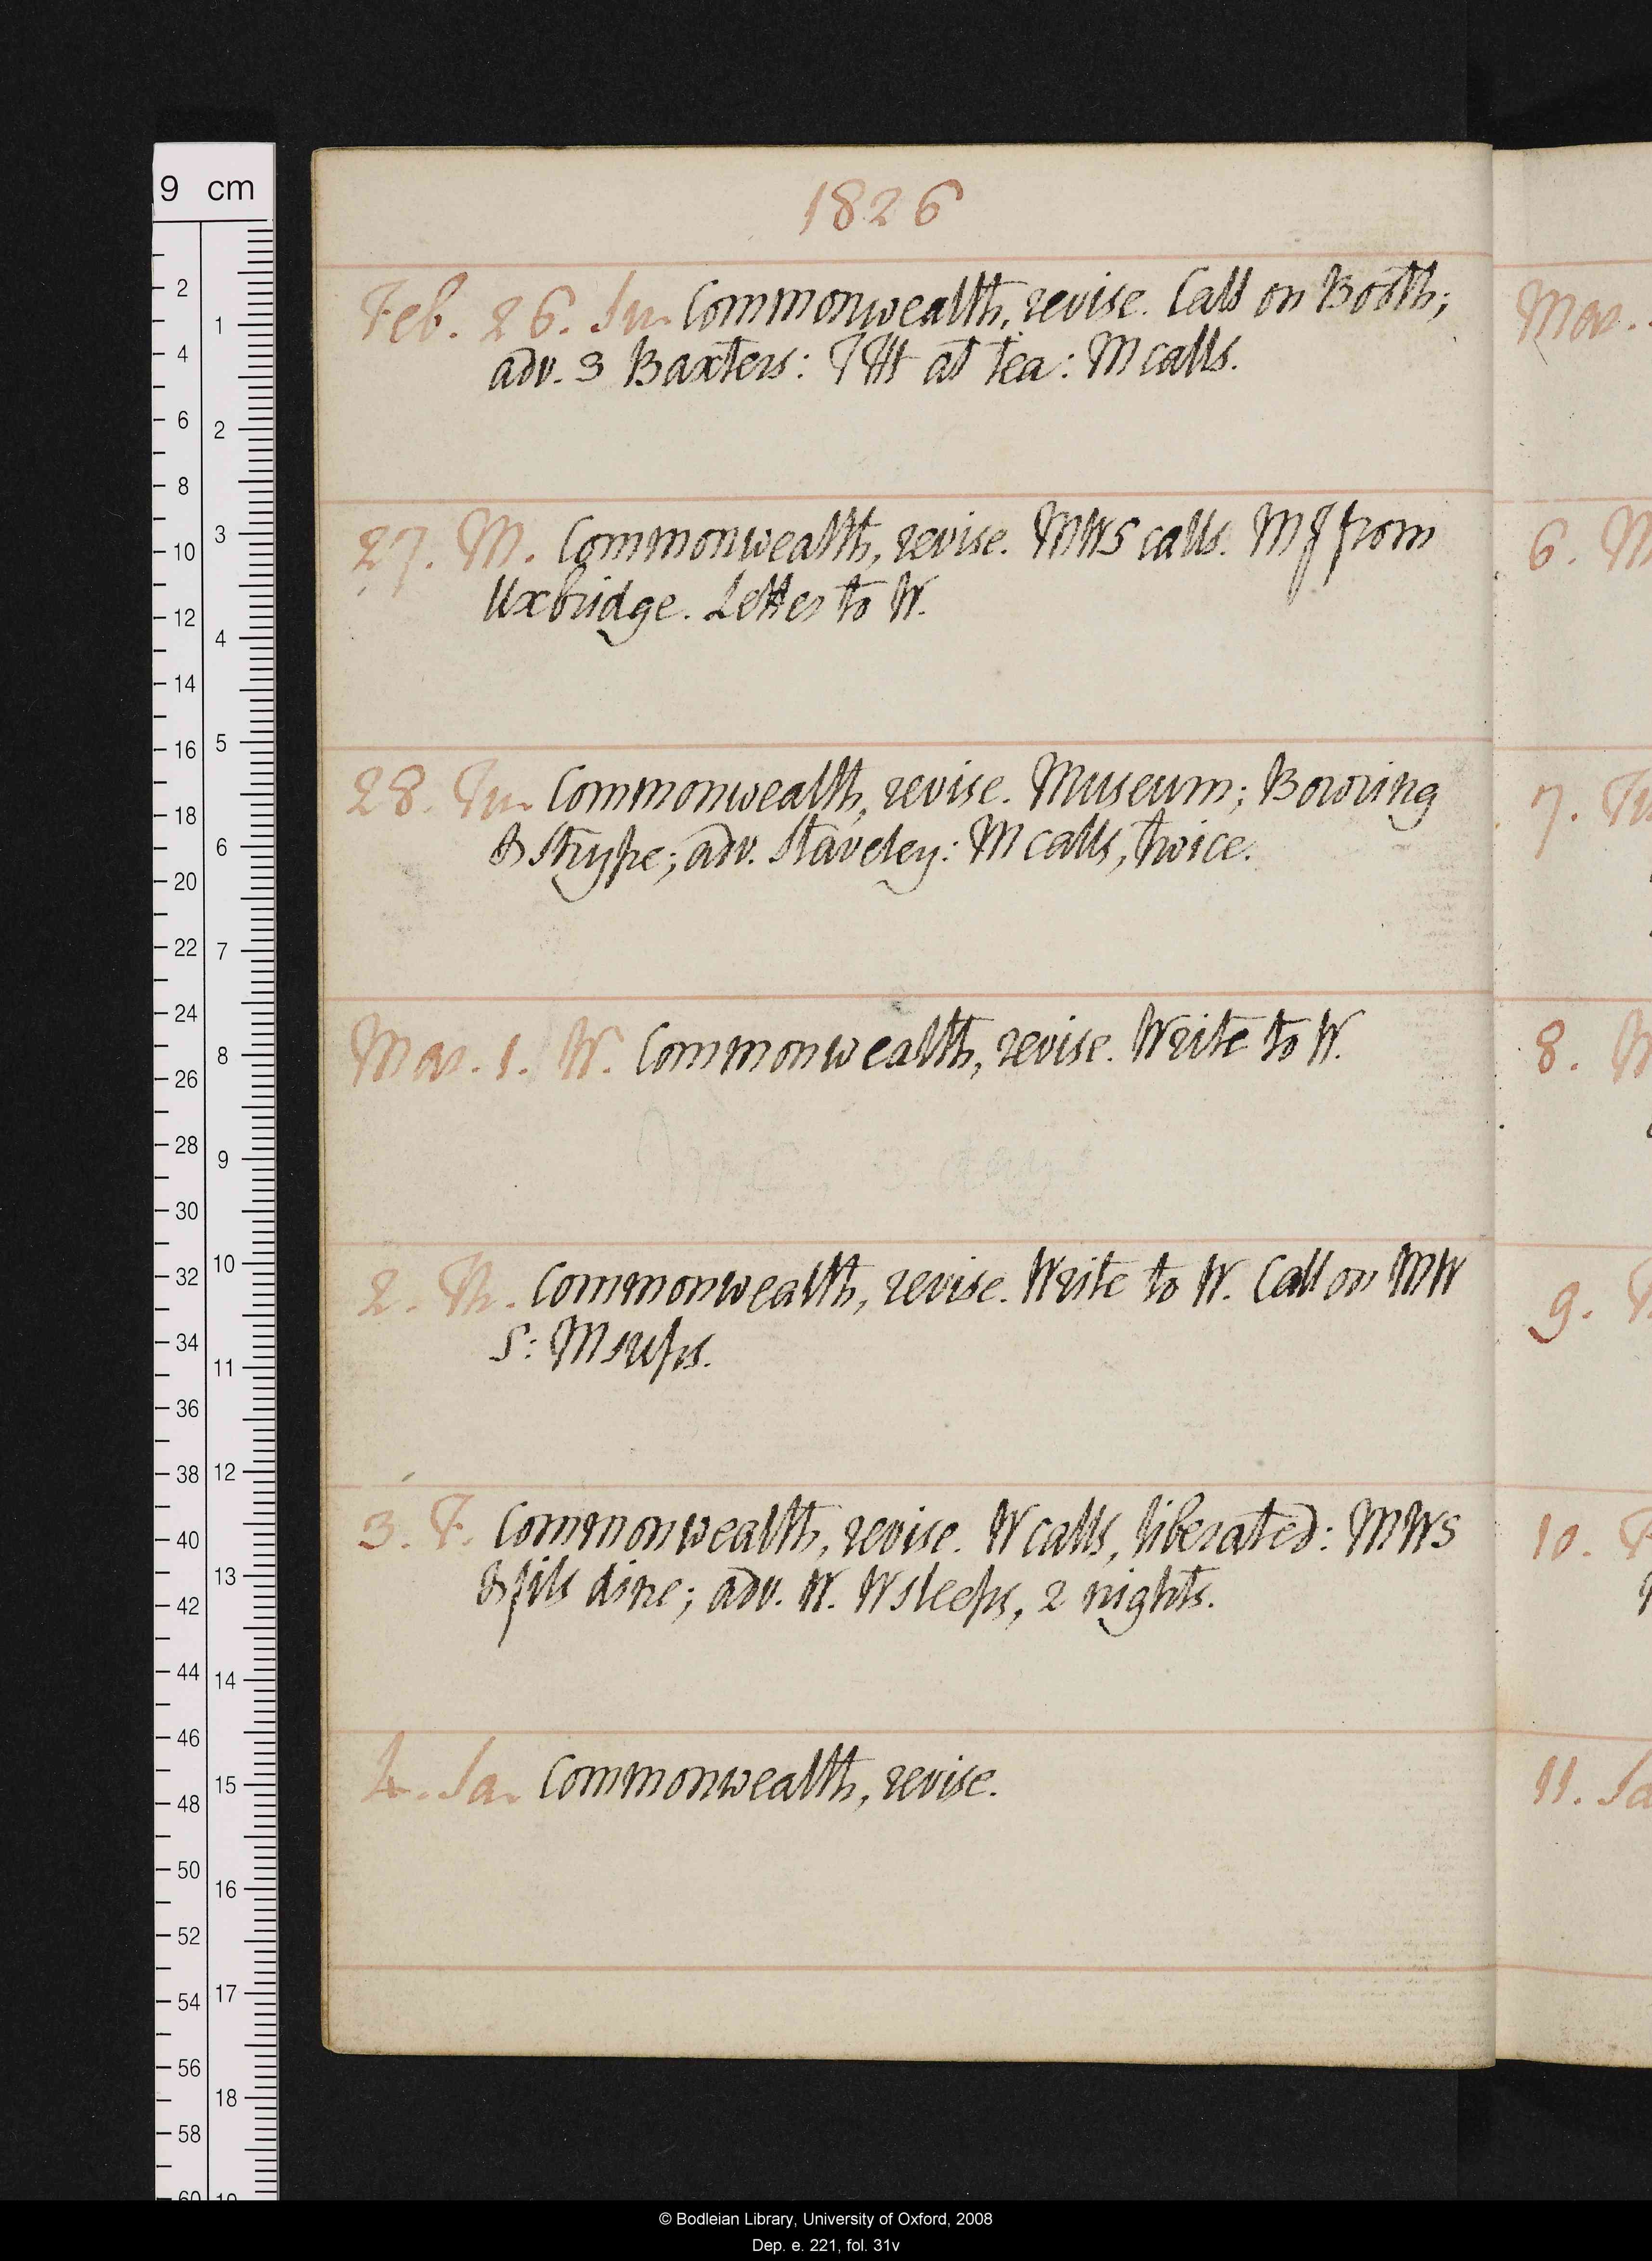 1826
Feb. 26. Su. Commonwealth, revise. Call on Booth;
adv. 3 Baxters: THt at tea: M calls.
27. M. Commonwealth, revise. MWS calls. MJ from
Uxbridge. Letter to W.
28. Tu. Commonwealth, revise. Museum; Bowring
& Strype; adv. Staveley: M calls, twice.
Mar. 1. W. Commonwealth, revise. Write to W.
2. Th. Commonwealth, revise. Write to W. Call on MW
S: M sups.
3. F. Commonwealth, revise. W calls, liberated: MWS
& fils dine; adv. W. W sleeps, 2 nights.
4. Sa. Commonwealth, revise.
Mar.
6. M
7. Tu
8. W
9. T
10. F
11. Sa
9 cm
2
4
6
8
10
12
14
16
18
20
22
24
26
28
30
32
34
36
38
40
42
44
46
48
50
52
54
56
58
60
1
2
3
4
5
6
7
8
9
10
11
12
13
14
15
16
17
18
19
© Bodleian Library, University of Oxford, 2008
Dep. e. 221, fol. 31v